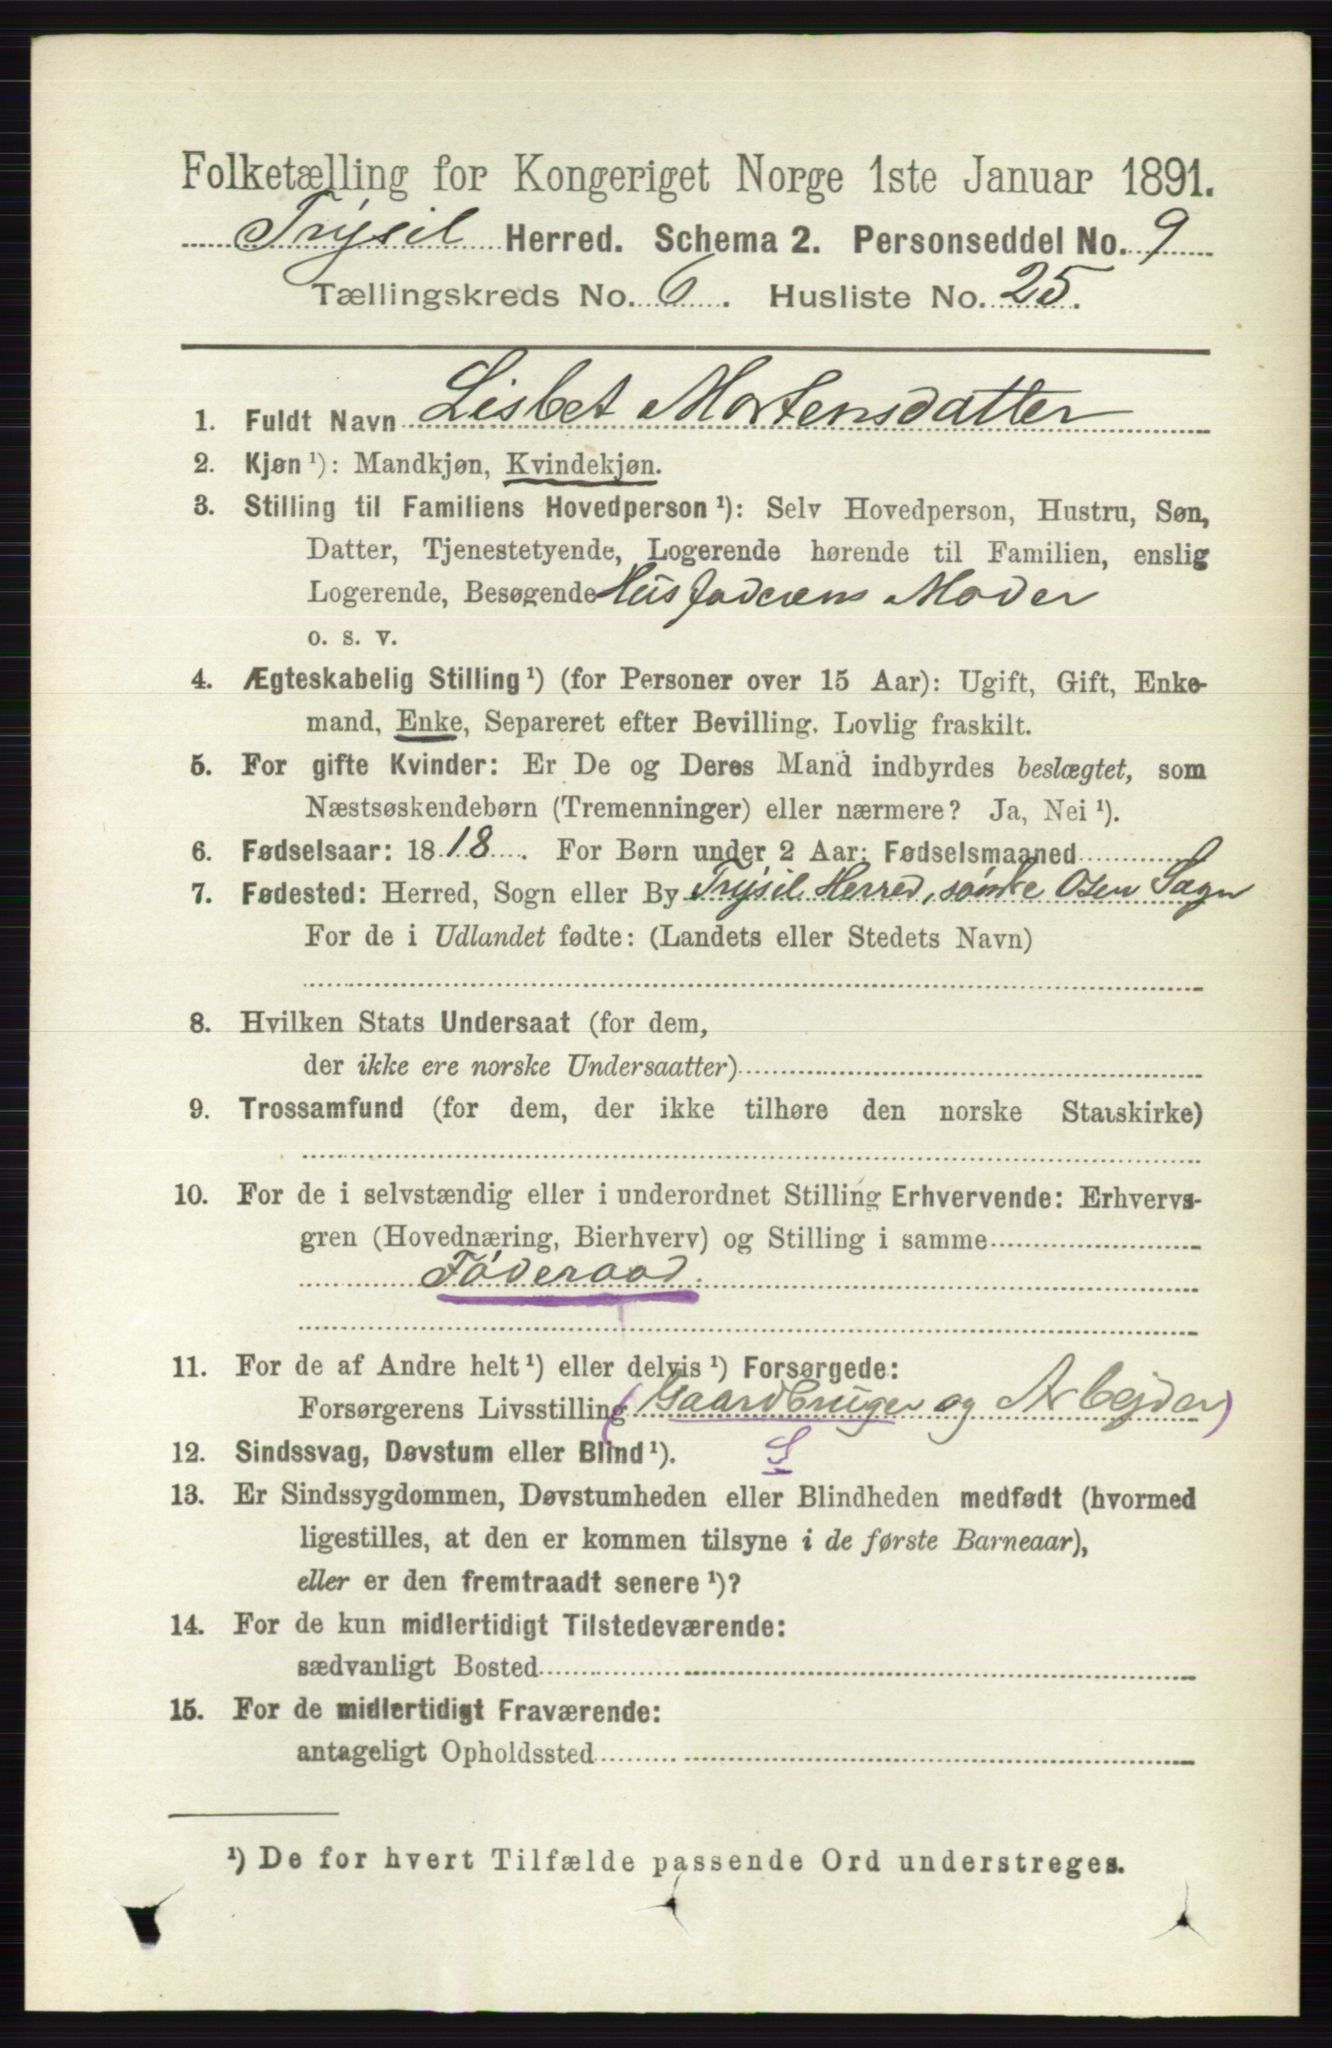 Folketælling for Kongeriget Norge 1ste Januar 1891.
Trysil Herred. Schema 2. Personseddel No. 9
Tællingskreds No. 6. Husliste No. 25.
1. Fuldt Navn Lisbet Mortensdatter
2. Kjøn ¹): Mandkjøn, Kvindekjøn.
3. Stilling til Familiens Hovedperson ¹): Selv Hovedperson, Hustru, Søn,
Datter, Tjenestetyende, Logerende hørende til Familien, enslig
Logerende, Besøgende Husfaderens Moder
o. s. v.
4. Ægteskabelig Stilling ¹) (for Personer over 15 Aar): Ugift, Gift, Enke-
mand, Enke, Separeret efter Bevilling. Lovlig fraskilt.
5. For gifte Kvinder: Er De og Deres Mand indbyrdes beslægtet, som
Næstsøskendebørn (Tremenninger) eller nærmere? Ja, Nei ¹).
6. Fødselsaar: 1818. For Børn under 2 Aar: Fødselsmaaned
7. Fødested: Herred, Sogn eller By Trysil Herred, søndre Osen Sogn
For de i Udlandet fødte: (Landets eller Stedets Navn)
8. Hvilken Stats Undersaat (for dem,
der ikke ere norske Undersaatter)
9. Trossamfund (for dem, der ikke tilhøre den norske Statskirke)
10. For de i selvstændig eller i underordnet Stilling Erhvervende: Erhvervs-
gren (Hovednæring, Bierhverv) og Stilling i samme
Føderaad.
11. For de af Andre helt ¹) eller delvis ¹) Forsørgede:
Forsørgerens Livsstilling (Gaardbruger og Arbejder)
12. Sindssvag, Døvstum eller Blind ¹). S
13. Er Sindssygdommen, Døvstumheden eller Blindheden medfødt (hvormed
ligestilles, at den er kommen tilsyne i de første Barneaar),
eller er den fremtraadt senere ¹)?
14. For de kun midlertidigt Tilstedeværende:
sædvanligt Bosted
15. For de midlertidigt Fraværende:
antageligt Opholdssted
¹) De for hvert Tilfælde passende Ord understreges.